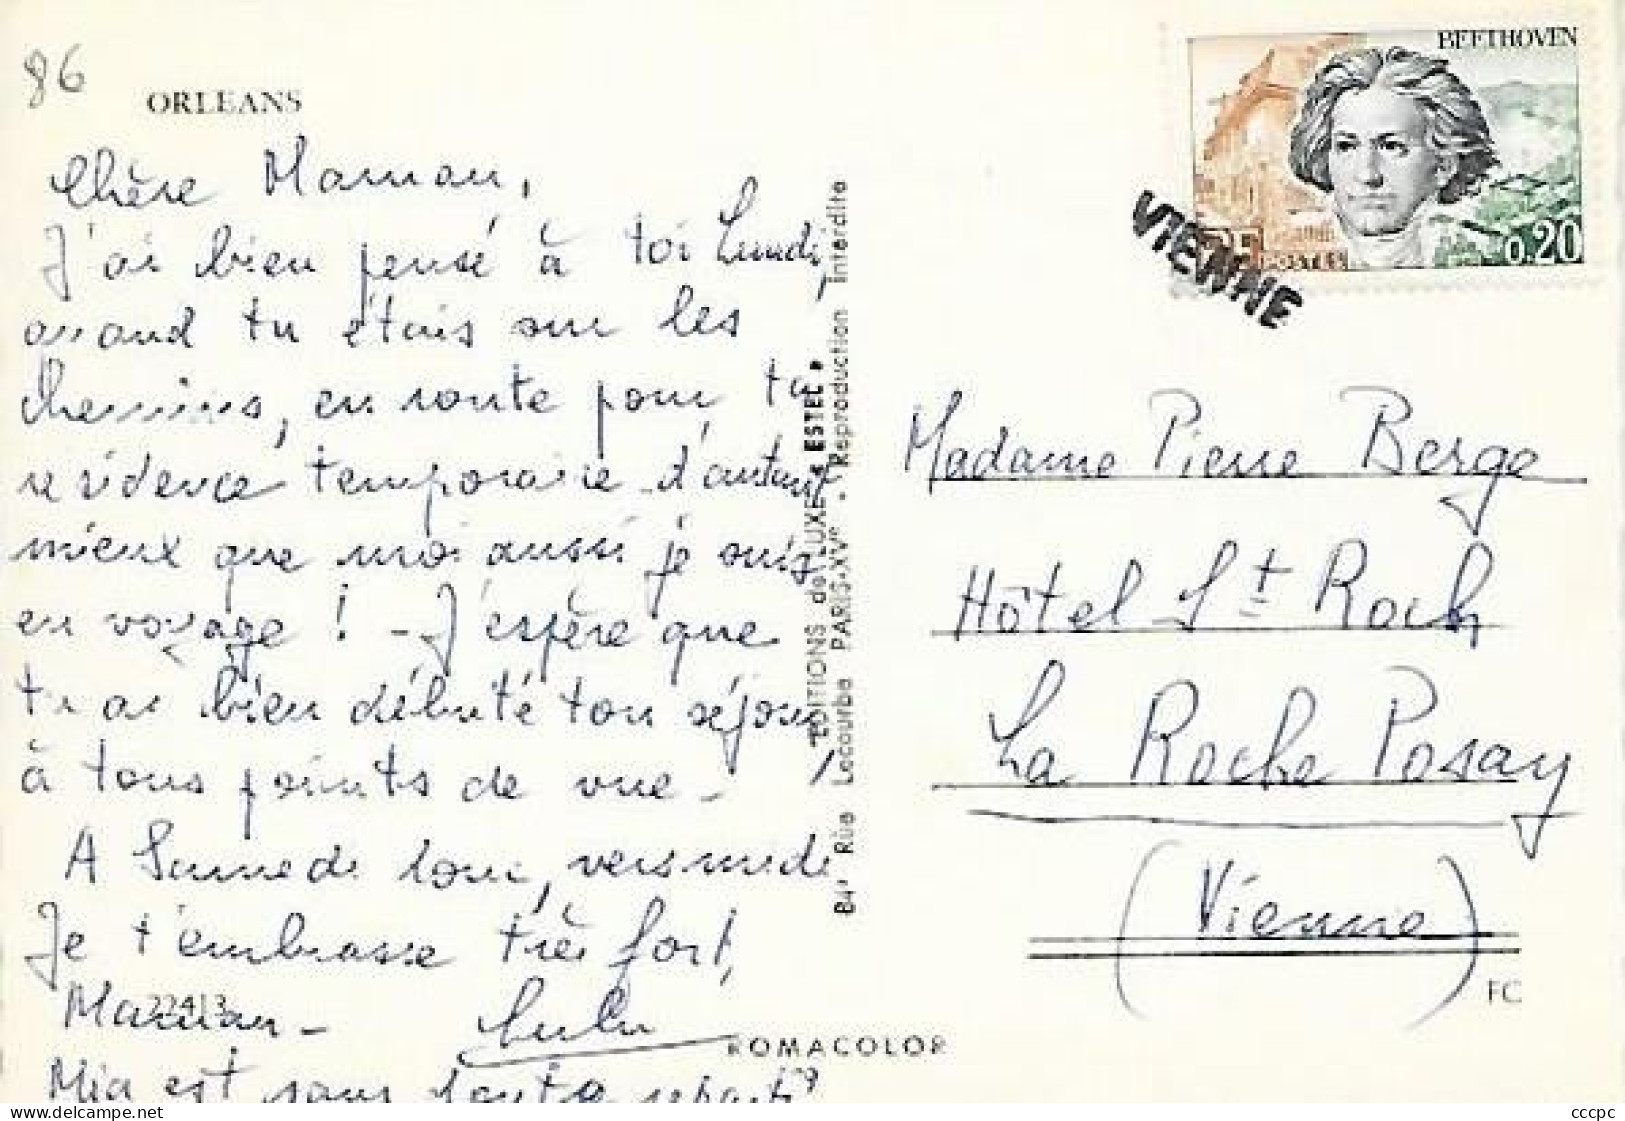 86
ORLEANS
Chère Maman,
J'ai bien pensé à toi Lundi,
quand tu étais sur les
Chemins, en route pour ta
résidence temporaire - d'autant
mieux que moi aussi je suis
en voyage ! - J'espère que
tu as bien débuté ton séjour,
à tous points de vue -
A Samedi soir, vers midi
Je t'embrasse très fort,
Maman -
22413
Lulu
Mia est sans doute repartie
ROMACOLOR
"EDITIONS de LUXE « ESTEL »
84, Rue Lecourbe PARIS-XVe - Reproduction Interdite
BEETHOVEN
RF
POSTES
0,20
VIENNE
Madame Pierre Berge
Hôtel St Roch
La Roche Posay
(Vienne)
FC
cccpc